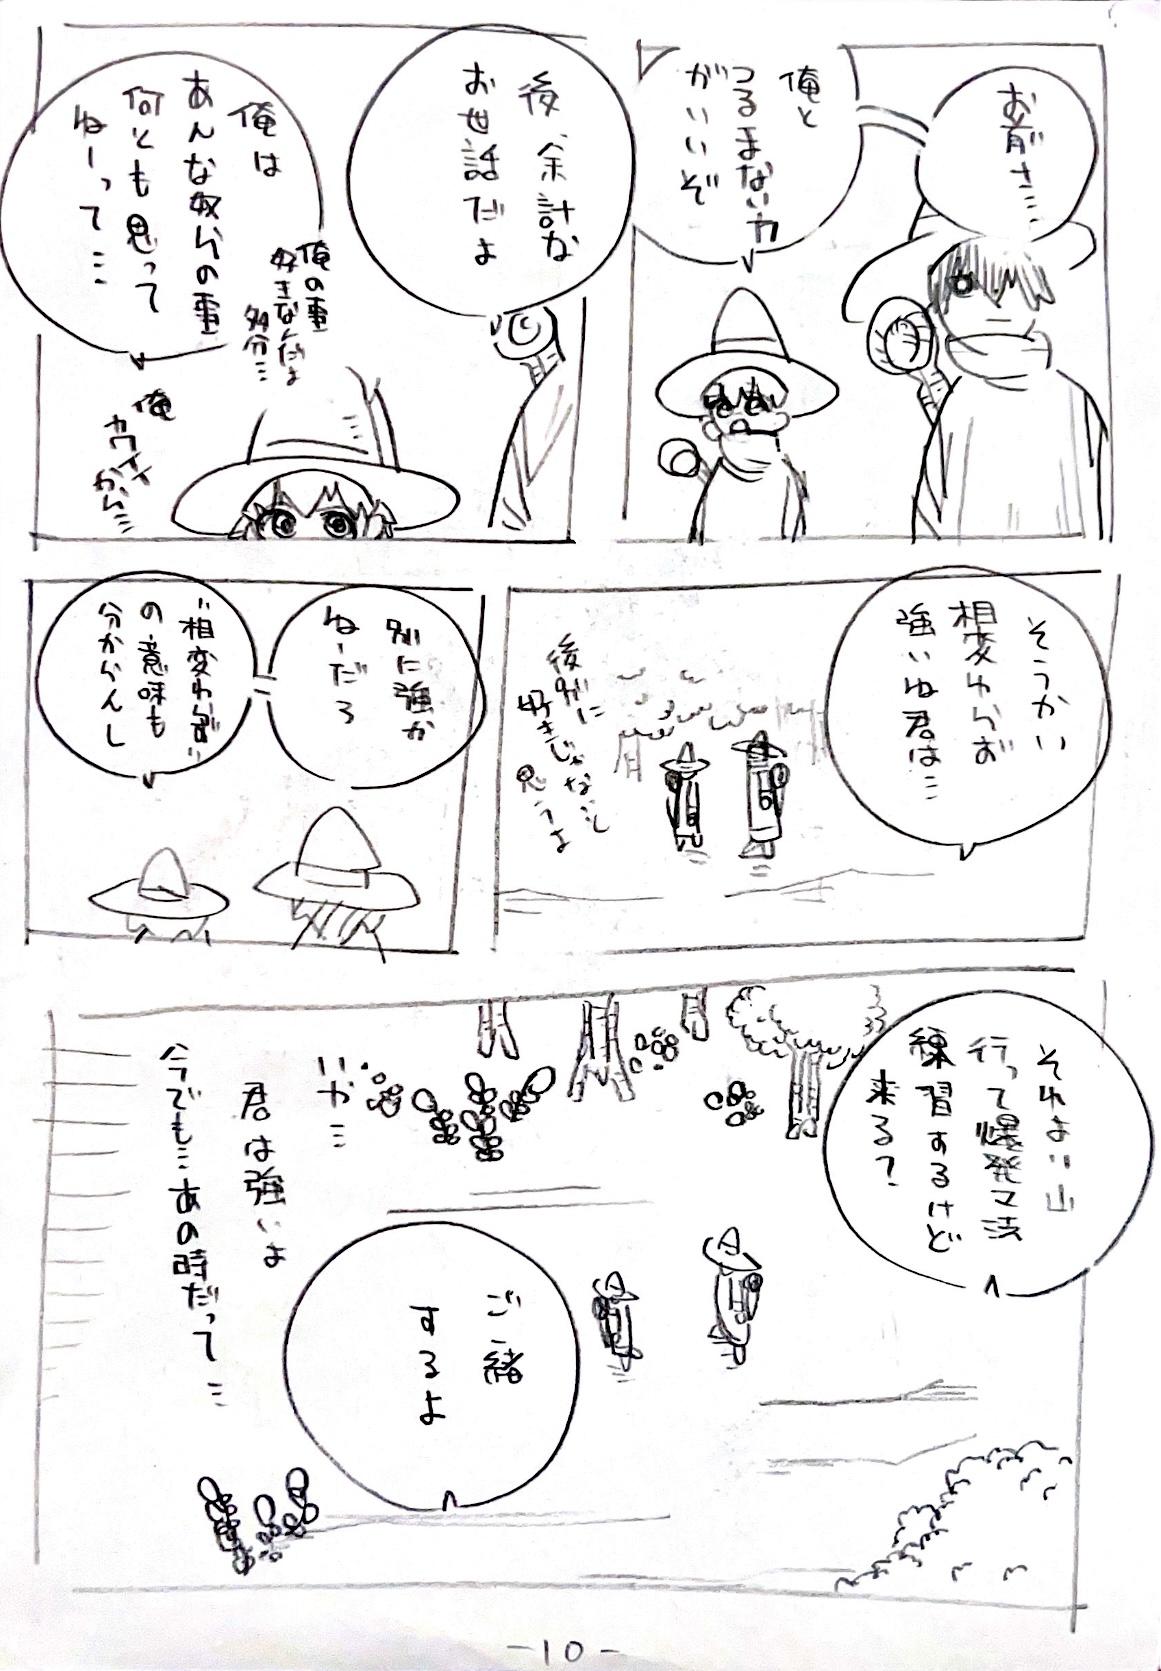 お前さ…
俺と
つるまない方
がいいぞ
後、余計な
お世話だよ
俺は
あんな奴らの事
何とも思って
ねーって…
俺の事
好きなんだよ
多分…
俺
カワイイ
から…
そうかい
相変わらず
強いね君は…
後別に
好きじゃないと
思うよ
別に強か
ねーだろ
"相変わらず"
の意味も
分からんし
それより山
行って爆発マ法
練習するけど
来る?
ご一緒
するよ
いや…
君は強いよ
今でも…あの時だって…
-10-